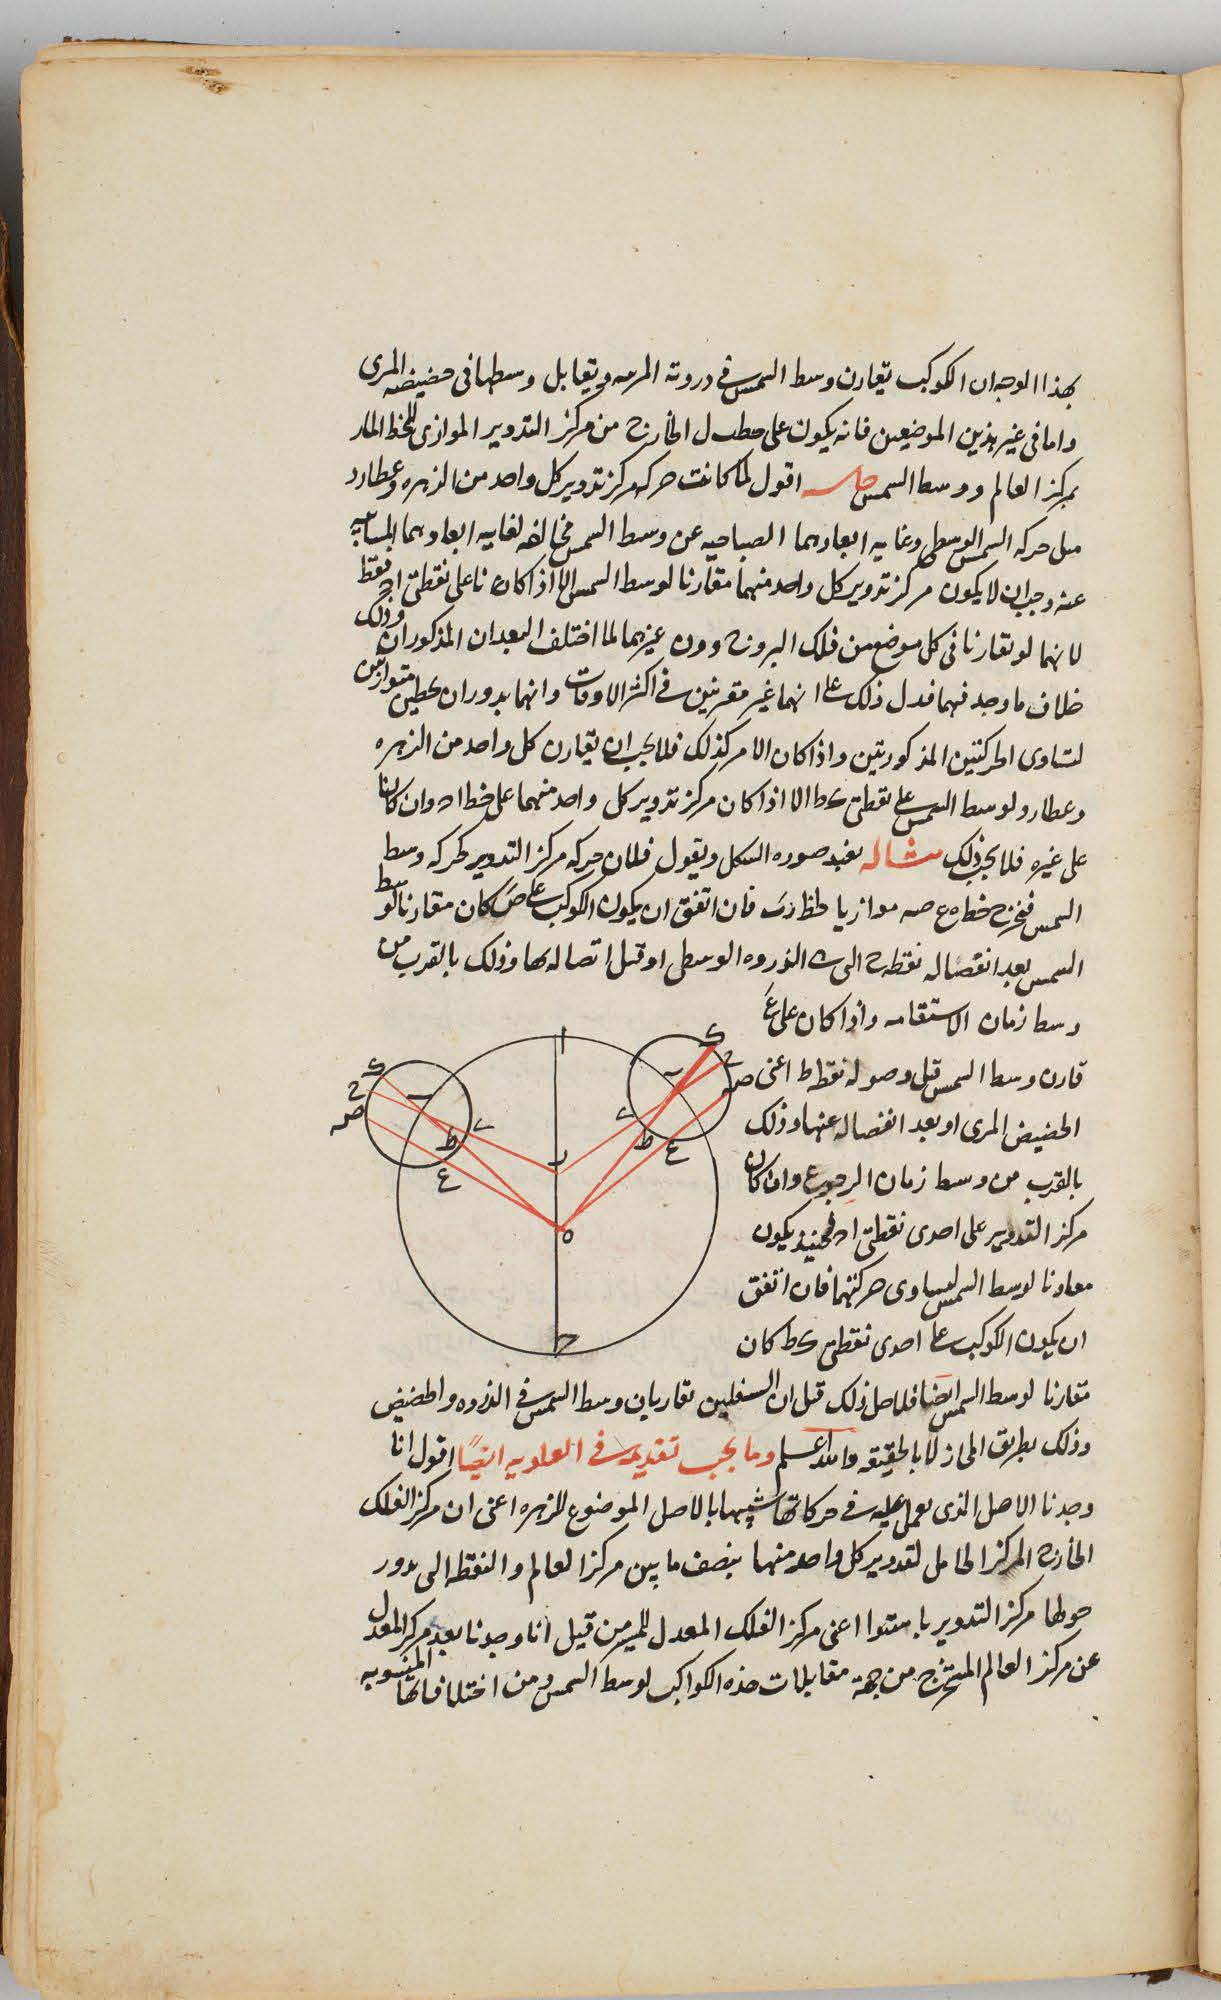 بهذا الوجه ان الكوكب يقارن وسط الشمس فى دروته المرييه ويقابل وسطها فى حضيضه المرى
واما فى غير هذين الموضعين فانه يكون على خط ل الخارج من مركز التدوير الموازى للخط المار
بمركز العالم ووسط الشمس حاسه اقول لما كانت حركه مركز تدوير كل واحد من الزهره وعطارد
مثل حركه الشمس الوسطى وغايه ابعادهما الصباحيه عن وسط الشمس مخالفه لغايه ابعادهما المسائيه
عنه وجب ان لا يكون مركز تدوير كل واحد منهما مقارنا لوسط الشمس الا اذا كانا على نقطتى اج فقط
لانهما لو تقارنا فى كل موضع من فلك البروج دون غيرهما لما اختلف البعدان المذكوران وذلك
خلاف ما وجد فيهما فدل ذلك على انهما غير مقترنين فى اكثر الاوقات وانهما يدوران بخطين متوازيين
لتساوى الحركتين المذكورتين واذا كان الامر كذلك فلا يجب ان يقارن كل واحد من الزهره
وعطارد لوسط الشمس على نقطتى ك ط الا اذا كان مركز تدوير كل واحد منهما على خط اج وان كانا
على غيره فلا يجب ذلك مثاله نعيد صوره الشكل ونقول فلان حركه مركز التدوير كحركه وسط
الشمس فنخرج خط ه ع صه موازيا لخط رب فان اتفق ان يكون الكوكب على ص كان مقارنا لوسط
الشمس بعد انفصاله نقطه ح التى هى الذروه الوسطى او قبل اتصاله بها وذلك بالقرب من
وسط زمان الاستقامه واذا كان على ع
قارن وسط الشمس قبل وصوله نقطه ط اعنى
الحضيض المرى او بعد انفصاله عنها وذلك
بالقرب من وسط زمان الرجوع وان كان
مركز التدوير على احدى نقطتى اج فحينئذ يكون
مقارنا لوسط الشمس لتساوى حركتهما فان اتفق
ان يكون الكوكب على احدى نقطتى ك ط كان
مقارنا لوسط الشمس ايضا فلاجل ذلك قيل ان السفليين يقاربان وسط الشمس فى الذروه والحضيض
وذلك بطريق المجاز لا بالحقيقه والله اعلم وما يجب تقديمه فى العلويه ايضًا اقول انا
وجدنا الاصل الذى يعمل عليه فى حركاتها شبيها بالاصل الموضوع للزهره اعنى ان مركز الفلك
الخارج المركز الحامل لتدوير كل واحد منها بنصف ما بين مركز العالم والنقطه التى يدور
حولها مركز التدوير باستوا اعنى مركز الفلك المعدل للمسير من قبل انا وجدنا بعد مركز المعدل
عن مركز العالم المستخرج من جهة مقابلات هذه الكواكب لوسط الشمس ومن اختلافاتها المنسوبه
ا
ك
ح
صه
ب
ط
ع
ك
ح
صه
ب
ط
ع
ر
ه
ج